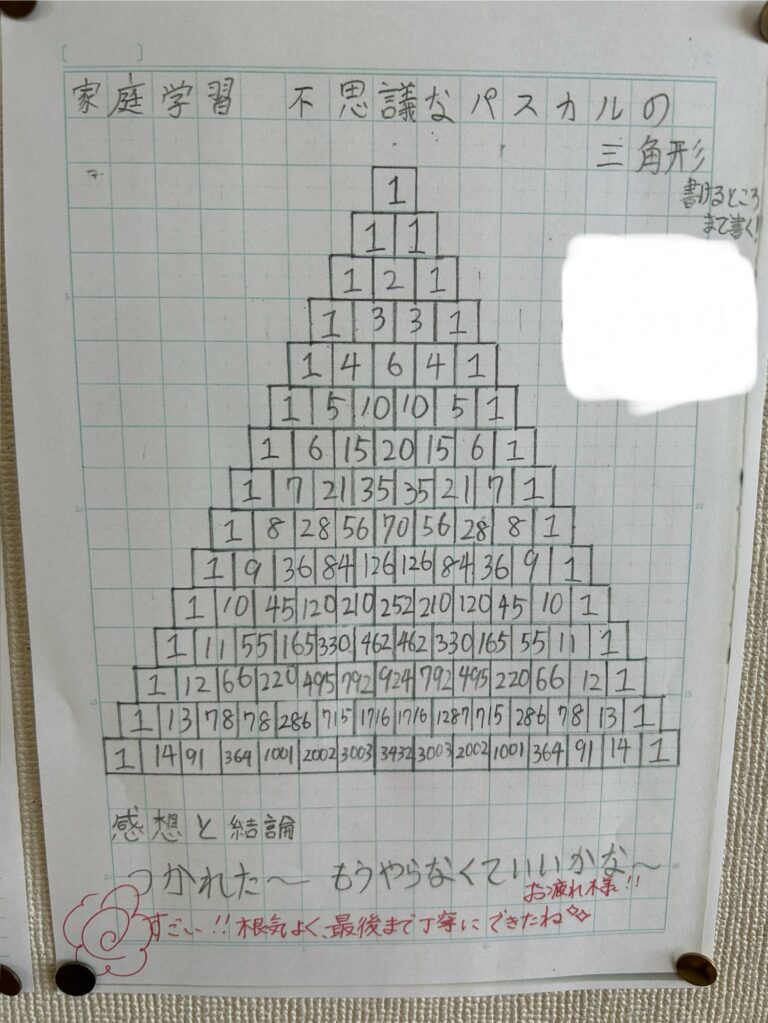 家庭学習 不思議なパスカルの
三角形
書けるところ
まで書く!
1
1 1
1 2 1
1 3 3 1
1 4 6 4 1
1 5 10 10 5 1
1 6 15 20 15 6 1
1 7 21 35 35 21 7 1
1 8 28 56 70 56 28 8 1
1 9 36 84 126 126 84 36 9 1
1 10 45 120 210 252 210 120 45 10 1
1 11 55 165 330 462 462 330 165 55 11 1
1 12 66 220 495 792 924 792 495 220 66 12 1
1 13 78 78 286 715 1716 1716 1287 715 286 78 13 1
1 14 91 364 1001 2002 3003 3432 3003 2002 1001 364 91 14 1
感想と結論
つかれた〜 もうやらなくていいかな〜
お疲れ様!!
すごい!!根気よく、最後まで丁寧にできたね